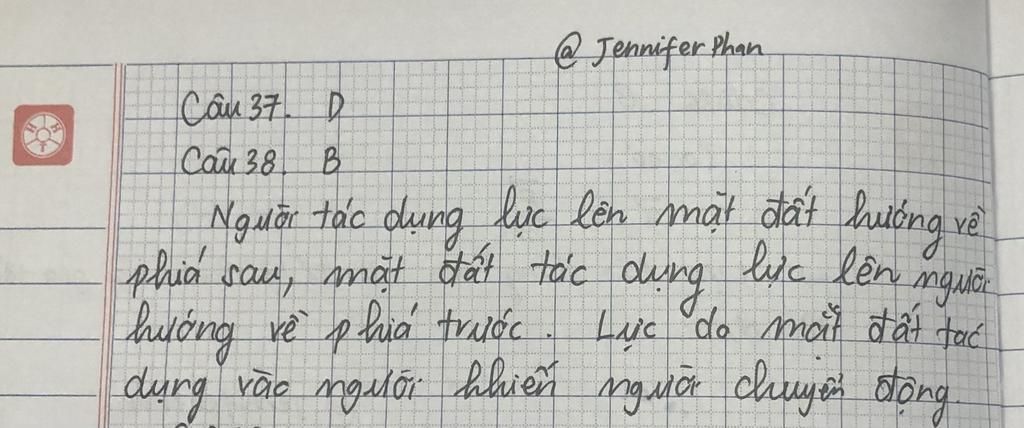 @ Jennifer Phan
Câu 37. D
Câu 38. B
Người tác dụng lực lên mặt đất hướng về
phiá sau, mặt đất tác dụng lực lên người
hướng về phiá trước. Lực do mặt đất tác
dụng vào người khiến người chuyển động